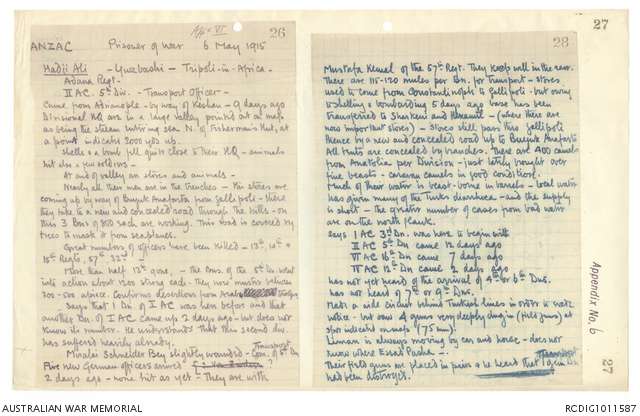 27
App VI
26
ANZAC Prisoner of war 6 May 1915
Hadji Ali - Yuzbashi - Tripoli-in-Africa -
Adana Regt -
II AC. 5th Div. - Transport Officer -
Came from Adrianople - by way of Keshan - 9 days ago
Divisional HQ are in a large valley pointed out on map
as being the stream entering sea N. of Fisherman's Hut, at
a point indicated 2000 yds up.
Shells & a bomb fell quite close to their HQ - animals
hit also & few soldiers -
At end of valley are stores and animals -
Nearly all their men are in the trenches - The stores are
coming up by way of Buyuk Anafarta from Gallipoli - there
they take to a new and concealed road through the hills - on
this 3 Bns of 800 each are working. This road is covered by
trees to mask it from seaplanes.
Great numbers of officers have been killed - 13th, 14th &
15th Regts, 57th
More than half 13th gone, - the Bns. of the 5th Div. went
into action about 1200 strong each. They now muster between
300 - 500 apiece. Confirms desertions from Arab
Says that 1 Div. of I AC was here before and that
another Div. of I AC came up 2 days ago - but does not
know its number. He understands that this second div.
has suffered heavily already.
Miralai Schneider Bey slightly wounded - Com. of 5th Div Transport
Five new German officers arrived
2 days ago - none hit as yet - They are with
28
Mustafa Kemal of the 57th Regt. They keep well in the rear.
There are 115-120 mules per Bn. for Transport - stores
used to come from Constantinople to Gallipoli - but owing
to shelling & bombarding 5 days ago base has been
transferred to Sharkeui and - (where there are
now important stores) - stores still pass thro Gallipoli
thence by a new and concealed road up to Buyuk Anafarta
All tents are concealed by branches - There are 400 camels
from Anatolia per Division - just lately brought over
fine beasts - caravan camels in good condition.
Much of their water is beast-borne in barrels - local water
has given many of the Turks diarrhœa - and the supply
is short - The greater number of cases from bad water
are on the north flank.
Says I AC 3rd Dn. was here to begin with
II AC 5th Dn came 12 days ago
VI AC 16th Dn came 7 days ago
VI AC 12th Dn came 2 days ago
has not yet heard of the arrival of 4th or 6th Dns.
has not heard of 7th or 9th Dns.
Made a side circuit behind Turkish lines in order to
but saw 4 guns very deeply dug in (field guns) at
spot indicated on map (75 mm).
Liman is always moving by car and horse - does not
know where Essad Pasha -
Their field guns are placed in pairs & he heard that 1 gun
had been destroyed.
Appendix No. 6
27
AUSTRALIAN WAR MEMORIAL
RCDIG1011587